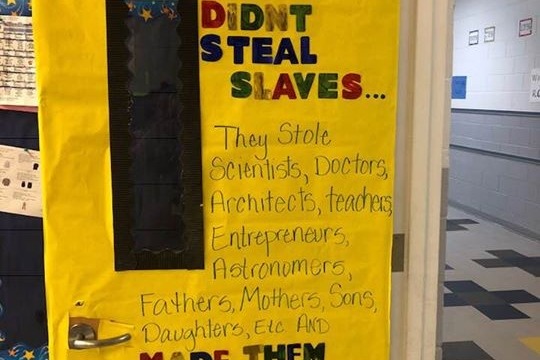 DIDNT
STEAL
SLAVES...
They Stole
Scientists, Doctors,
Architects, teachers,
Entrepreneurs,
Astronomers,
Fathers, Mothers, Sons,
Daughters, Etc AND
MADE THEM